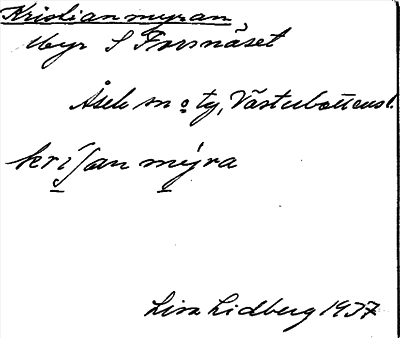 Kristianmyran
Myr S Forsnäset
Åsele sn o ty, Västerbottensl.
kriʃan mýra
Lisa Lidberg 1937